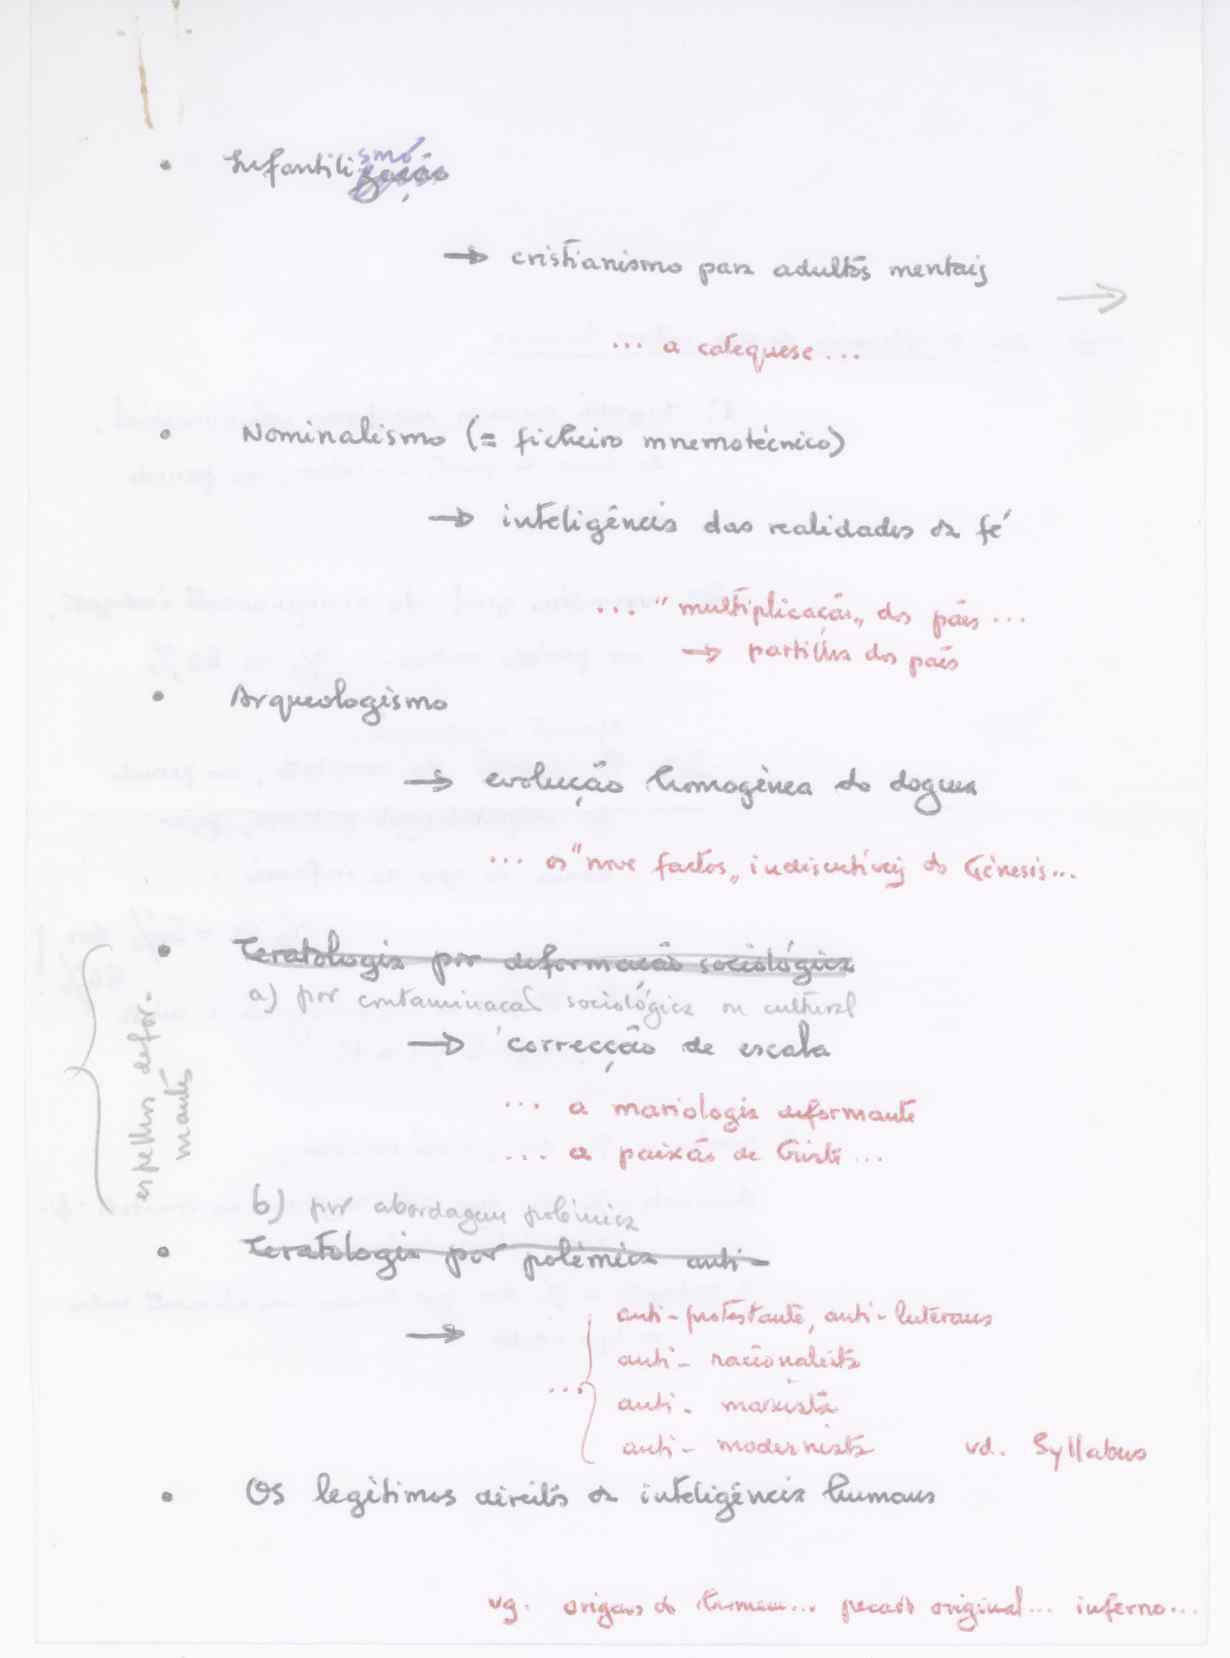 • Infantilismo
→ cristianismo para adultos mentais →
... a catequese ...
• Nominalismo (= ficheiro mnemotécnico)
→ inteligência das realidades da fé
... "multiplicação" dos pães ...
→ partilha dos pães
• Arqueologismo
→ evolução homogénea do dogma
... os "nove factos" indiscutíveis do Génesis...
espelhos defor-
mantes
• Teratologia por deformação sociológica
a) por contaminação sociológica ou cultural
→ correcção de escala
... a mariologia deformante
... a paixão de Cristo ...
b) por abordagem polémica
• Teratologia por polémica anti-
→ ... anti-protestante, anti-luterana
anti-racionalista
anti-marxista
anti-modernista vd. Syllabus
• Os legítimos direitos da inteligência humana
vg. origens do homem... pecado original... inferno...